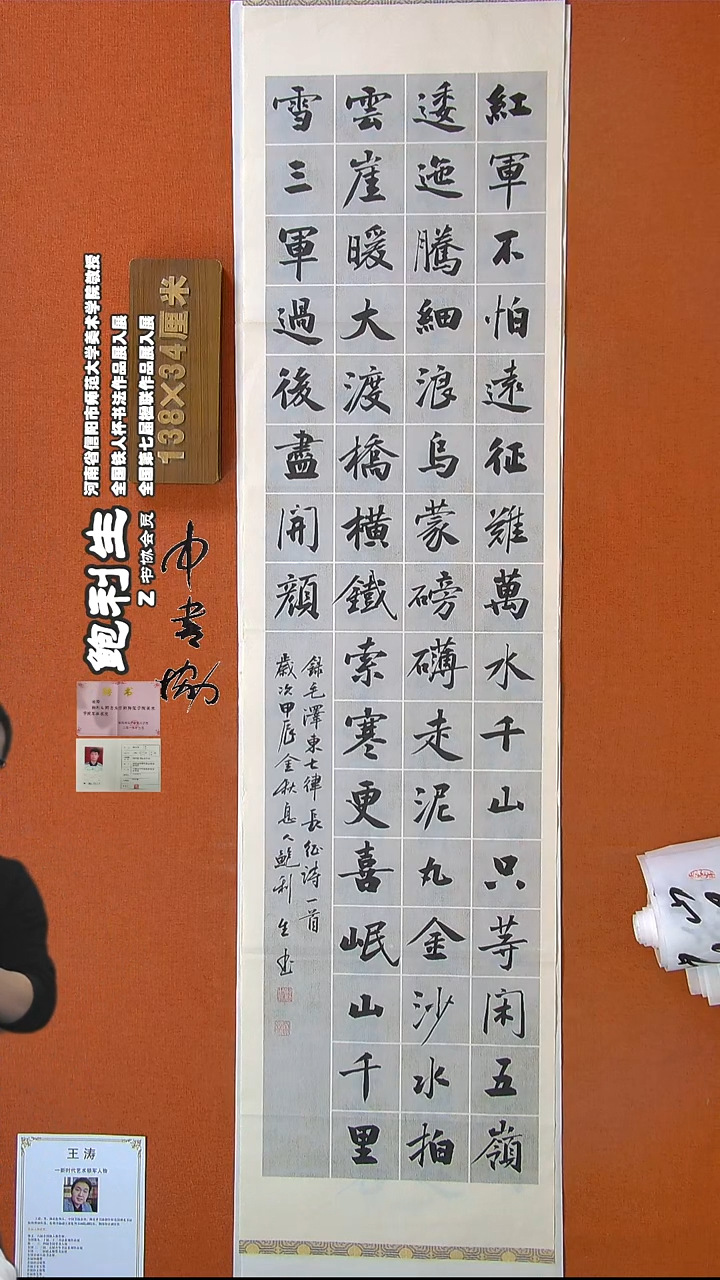 紅軍不怕遠征難萬水千山只等闲五嶺
逶迤騰細浪烏蒙磅礴走泥丸金沙水拍
雲崖暖大渡橋橫鐵索寒更喜岷山千里
雪三軍過後盡開顏
錄毛澤東七律長征詩一首
歲次甲辰金秋息人鮑利生書
138×34厘米
河南省信阳市师范大学美术学院教授
全国铁人杯书法作品展入展
全国第七届楹联作品展入展
鲍利生
Z书协会员
中书协
王涛
一新时代艺术领军人物